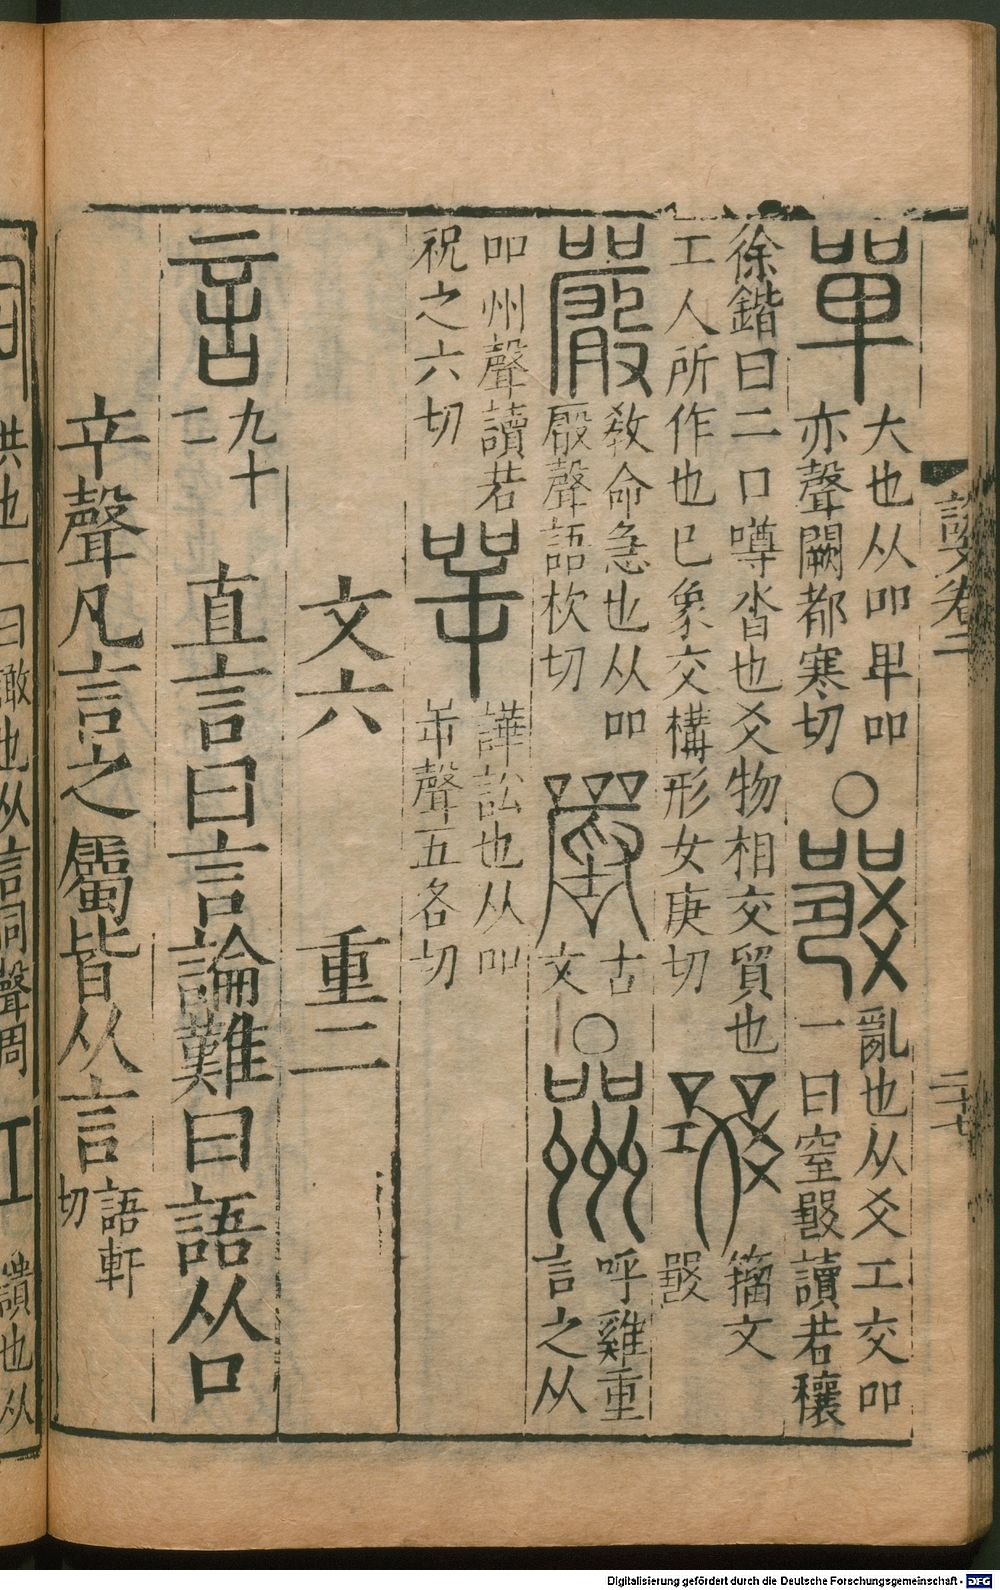 說文卷二
二十七
單
大也从吅吅
亦聲闕都寒切
○
𤕦
亂也从爻工交吅
一曰窒𤕦讀若穰
徐鍇曰二口噂沓也爻物相交貿也
工人所作也已象交構形女庚切
籀文
𤕦
嚴
教命急也从吅
厰聲語杴切
古
文
○
喌
呼雞重
言之从
吅州聲讀若
祝之六切
咢
譁訟也从吅
屰聲五各切
文六 重二
言
九十
二
直言曰言論難曰語从口
䇂聲凡言之屬皆从言
語軒
切
共也一曰譀也从言同聲周
讃也从
Digitalisierung gefördert durch die Deutsche Forschungsgemeinschaft - DFG